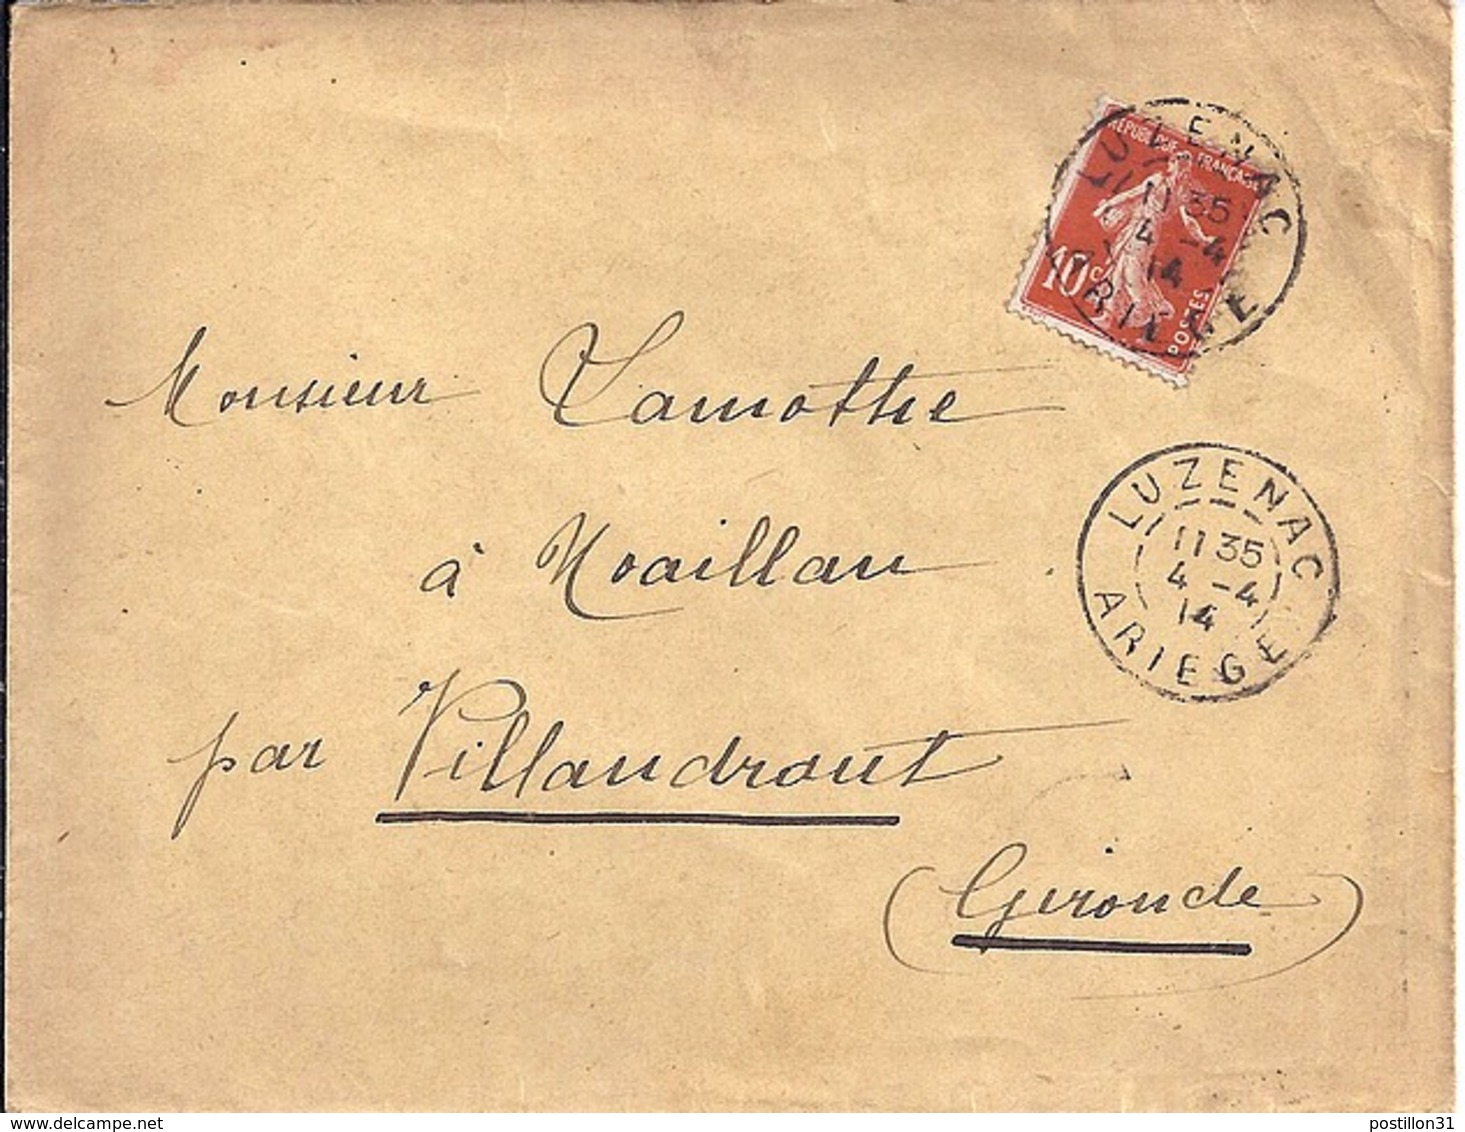 RÉPUBLIQUE FRANÇAISE
10c
POSTES
LUZENAC
11 35
4 -4
14
ARIEGE
Monsieur Lamothe
à Noaillan
par Villandraut
(Gironde)
LUZENAC
11 35
4 -4
14
ARIEGE
delcampe.net
postillon31